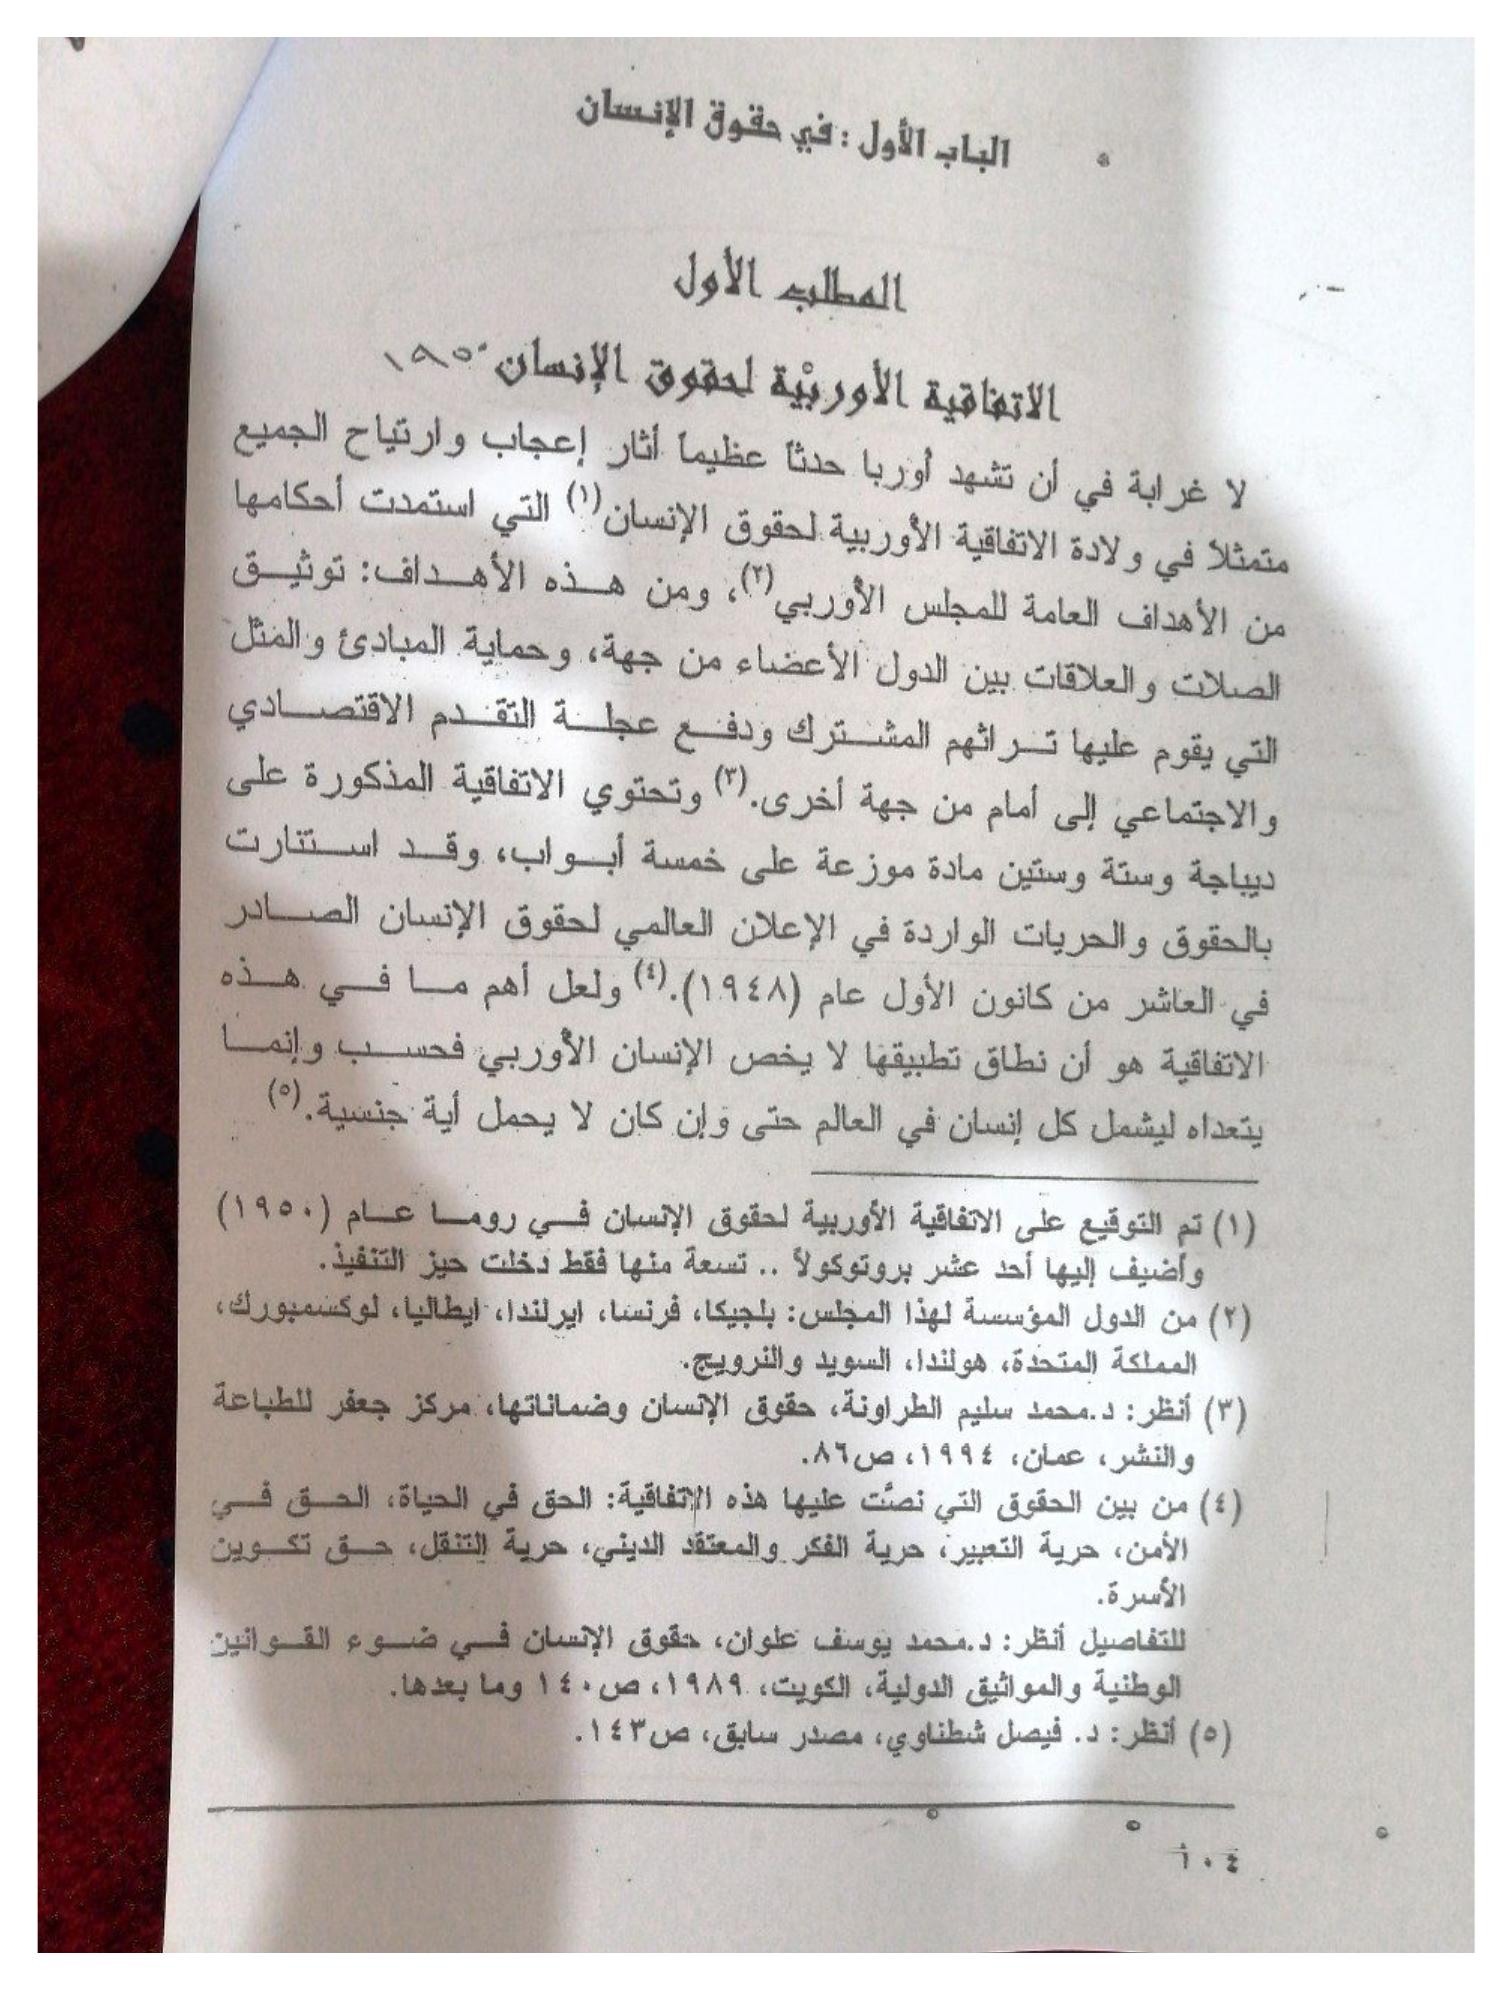 الباب الأول : في حقوق الإنسان
المطلب الأول
الاتفاقية الأوربية لحقوق الإنسان ١٩٥٠
لا غرابة في أن تشهد أوربا حدثاً عظيماً أثار إعجاب وارتياح الجميع
متمثلاً في ولادة الاتفاقية الأوربية لحقوق الإنسان(١) التي استمدت أحكامها
من الأهداف العامة للمجلس الأوربي(٢)، ومن هذه الأهداف: توثيق
الصلات والعلاقات بين الدول الأعضاء من جهة، وحماية المبادئ والمثل
التي يقوم عليها تراثهم المشترك ودفع عجلة التقدم الاقتصادي
والاجتماعي إلى أمام من جهة أخرى.(٣) وتحتوي الاتفاقية المذكورة على
ديباجة وستة وستين مادة موزعة على خمسة أبواب، وقد استنارت
بالحقوق والحريات الواردة في الإعلان العالمي لحقوق الإنسان الصادر
في العاشر من كانون الأول عام (١٩٤٨).(٤) ولعل أهم ما في هذه
الاتفاقية هو أن نطاق تطبيقها لا يخص الإنسان الأوربي فحسب وإنما
يتعداه ليشمل كل إنسان في العالم حتى وإن كان لا يحمل أية جنسية.(٥)
(١) تم التوقيع على الاتفاقية الأوربية لحقوق الإنسان في روما عام (١٩٥٠)
وأضيف إليها أحد عشر بروتوكولاً .. تسعة منها فقط دخلت حيز التنفيذ.
(٢) من الدول المؤسسة لهذا المجلس: بلجيكا، فرنسا، ايرلندا، ايطاليا، لوكسمبورك،
المملكة المتحدة، هولندا، السويد والنرويج.
(٣) أنظر: د.محمد سليم الطراونة، حقوق الإنسان وضماناتها، مركز جعفر للطباعة
والنشر، عمان، ١٩٩٤، ص٨٦.
(٤) من بين الحقوق التي نصّت عليها هذه الاتفاقية: الحق في الحياة، الحق في
الأمن، حرية التعبير، حرية الفكر والمعتقد الديني، حرية التنقل، حق تكوين
الأسرة.
للتفاصيل أنظر: د.محمد يوسف علوان، حقوق الإنسان في ضوء القوانين
الوطنية والمواثيق الدولية، الكويت، ١٩٨٩، ص١٤٠ وما بعدها.
(٥) أنظر: د. فيصل شطناوي، مصدر سابق، ص١٤٣.
١٠٤